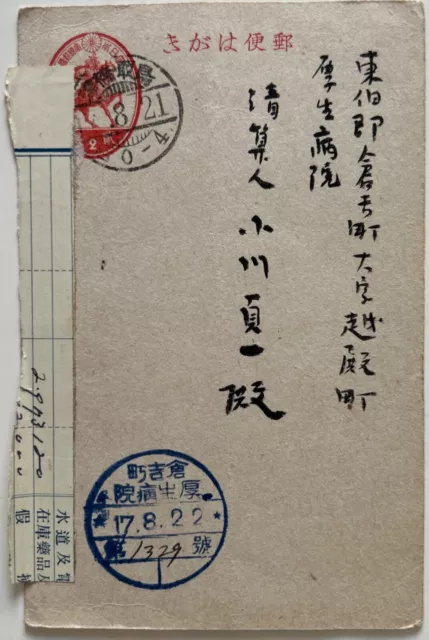 郵便はがき
鳥取
8.21
東伯郡倉吉町大字越殿町
厚生病院
清算人 小川貞一殿
倉吉町
厚生病院
17.8.22
第1329號
水道及電
在庫藥品及
假